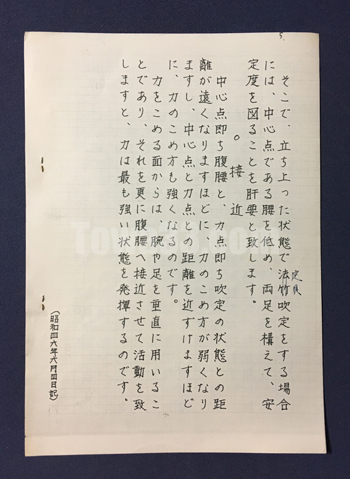 そこで、立ち上った状態で法竹吹定をする場合
には、中心点である腰を低め、両足を構えて、安
定度を図ることを肝要と致します。
○接近
中心点即ち腹腰と、力点即ち吹定の状態との距
離が遠くなりますほどに力のこめ方が弱くなり
ますし、中心点と力点との距離を近ずけますほど
に、力のこめ方も強くなるのです。
力をこめる面からは、腕や足を垂直に用いるこ
とであり、それを更に腹腰へ接近させて活動を致
しますと、力は最も強い状態を発揮するのです。
(昭和四六年六月四日記)